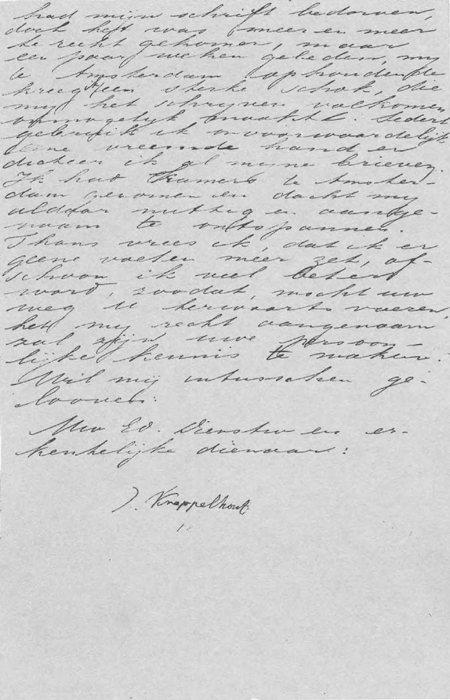 had mijn schrift bedorven,
doch het was meer en meer
te recht gekomen, maar
een paar weken geleden, my
te Amsterdam ophoudende
kreeg een sterke schok, die
my het schryven volkomen
onmogelyk maakte. Sedert
gebruik ik onvoorwaardelyk
eene vreemde hand en
dicteer ik al myne brieven.
Ik had kamers te Amster-
dam genomen en dacht my
aldaar nuttig en aange-
naam te ontspannen.
Thans vrees ik, dat ik er
geene voeten meer zet, of-
schoon ik veel beter
word, zoodat, mocht uw
weg U herwaarts voeren,
het my recht aangenaam
zal zijn uwe persoon-
lijke kennis te maken.
Wil my intusschen ge-
looven:
Uw Ed. Dienstw en er-
kentelijke dienaar:
J. Kneppelhout